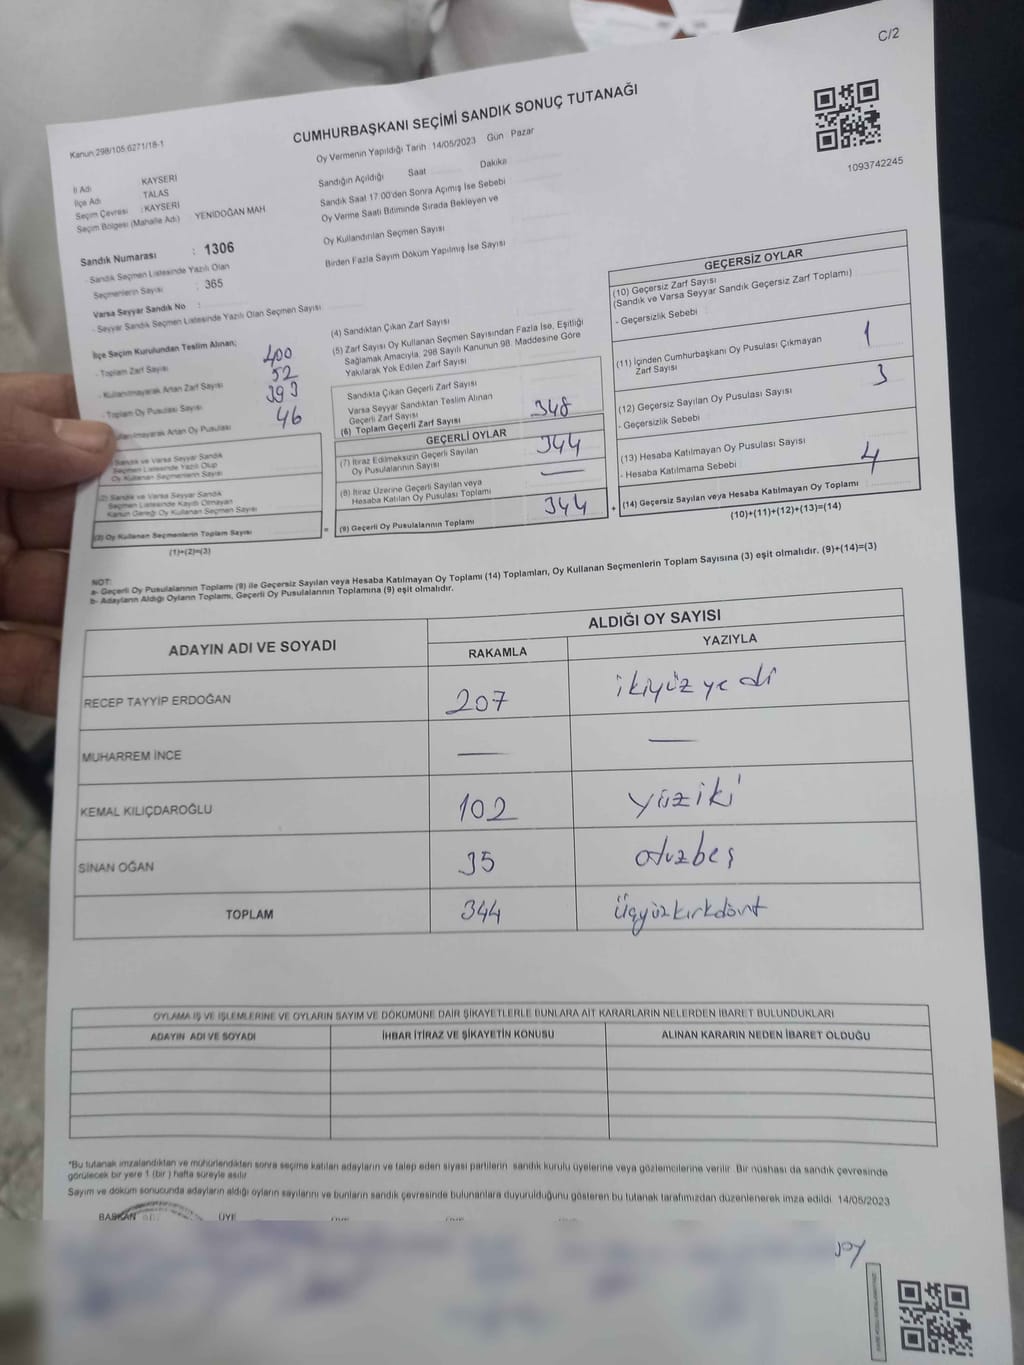 C/2
CUMHURBAŞKANI SEÇİMİ SANDIK SONUÇ TUTANAĞI
Kanun:298/105 6271/18-1
Oy Vermenin Yapıldığı Tarih : 14/05/2023 Gün : Pazar
1093742245
İl Adı : KAYSERİ
İlçe Adı : TALAS
Seçim Çevresi : KAYSERİ
Seçim Bölgesi (Mahalle Adı) : YENİDOĞAN MAH
Sandığın Açıldığı Saat Dakika
Sandık Saat 17 00'den Sonra Açımış İse Sebebi
Oy Verme Saati Bitiminde Sırada Bekleyen ve
Oy Kullandırılan Seçmen Sayısı
Birden Fazla Sayım Döküm Yapılmış İse Sayısı
Sandık Numarası : 1306
- Sandık Seçmen Listesinde Yazılı Olan
Seçmenlerin Sayısı : 365
Varsa Seyyar Sandık No :
- Seyyar Sandık Seçmen Listesinde Yazılı Olan Seçmen Sayısı
İlçe Seçim Kurulundan Teslim Alınan;
- Toplam Zarf Sayısı 400
- Kullanılmayarak Artan Zarf Sayısı 52
- Toplam Oy Pusulası Sayısı 393
Artan Oy Pusulası 46
Sandık ve Varsa Seyyar Sandık
Seçmen Listesinde Yazılı Olup
Oy Kullanan Seçmenlerin Sayısı
(2) Sandık ve Varsa Seyyar Sandık
Seçmen Listesinde Kaydı Olmayan
Kanun Gereği Oy Kullanan Seçmen Sayısı
(3) Oy Kullanan Seçmenlerin Toplam Sayısı
(1)+(2)=(3)
=
(4) Sandıktan Çıkan Zarf Sayısı
(5) Zarf Sayısı Oy Kullanan Seçmen Sayısından Fazla İse, Eşitliği
Sağlamak Amacıyla, 298 Sayılı Kanunun 98. Maddesine Göre
Yakılarak Yok Edilen Zarf Sayısı
Sandıkta Çıkan Geçerli Zarf Sayısı
Varsa Seyyar Sandıktan Teslim Alınan
Geçerli Zarf Sayısı
(6) Toplam Geçerli Zarf Sayısı 348
GEÇERLİ OYLAR
(7) İtiraz Edilmeksizin Geçerli Sayılan
Oy Pusulalarının Sayısı 344
(8) İtiraz Üzerine Geçerli Sayılan veya
Hesaba Katılan Oy Pusulası Toplamı —
(9) Geçerli Oy Pusulalarının Toplamı 344
+
GEÇERSİZ OYLAR
(10) Geçersiz Zarf Sayısı
(Sandık ve Varsa Seyyar Sandık Geçersiz Zarf Toplamı)
- Geçersizlik Sebebi
(11) İçinden Cumhurbaşkanı Oy Pusulası Çıkmayan
Zarf Sayısı 1
(12) Geçersiz Sayılan Oy Pusulası Sayısı 3
- Geçersizlik Sebebi
(13) Hesaba Katılmayan Oy Pusulası Sayısı
- Hesaba Katılmama Sebebi
(14) Geçersiz Sayılan veya Hesaba Katılmayan Oy Toplamı 4
(10)+(11)+(12)+(13)=(14)
NOT:
a- Geçerli Oy Pusulalarının Toplamı (9) ile Geçersiz Sayılan veya Hesaba Katılmayan Oy Toplamı (14) Toplamları, Oy Kullanan Seçmenlerin Toplam Sayısına (3) eşit olmalıdır. (9)+(14)=(3)
b- Adayların Aldığı Oyların Toplamı, Geçerli Oy Pusulalarının Toplamına (9) eşit olmalıdır.
ADAYIN ADI VE SOYADI ALDIĞI OY SAYISI
RAKAMLA YAZIYLA
RECEP TAYYİP ERDOĞAN 207 ikiyüz yedi
MUHARREM İNCE — —
KEMAL KILIÇDAROĞLU 102 yüziki
SİNAN OĞAN 35 otuzbeş
TOPLAM 344 Üçyüzkırkdört
OYLAMA İŞ VE İŞLEMLERİNE VE OYLARIN SAYIM VE DÖKÜMÜNE DAİR ŞİKAYETLERLE BUNLARA AİT KARARLARIN NELERDEN İBARET BULUNDUKLARI
ADAYIN ADI VE SOYADI İHBAR İTİRAZ VE ŞİKAYETİN KONUSU ALINAN KARARIN NEDEN İBARET OLDUĞU
*Bu tutanak imzalandıktan ve mühürlendikten sonra seçime katılan adayların ve talep eden siyasi partilerin sandık kurulu üyelerine veya gözlemcilerine verilir. Bir nüshası da sandık çevresinde
görülecek bir yere 1 (bir ) hafta süreyle asılır
Sayım ve döküm sonucunda adayların aldığı oyların sayılarını ve bunların sandık çevresinde bulunanlara duyurulduğunu gösteren bu tutanak tarafımızdan düzenlenerek imza edildi. 14/05/2023
BAŞKAN ÜYE